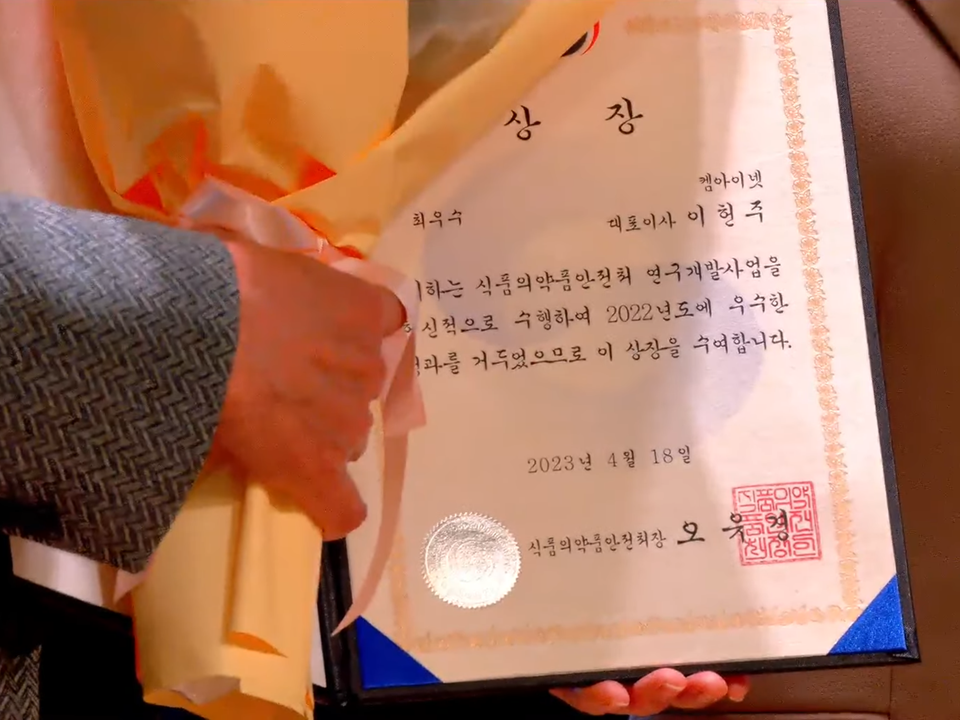 상 장
켐아이넷
최우수
대표이사 이 헌 주
하는 식품의약품안전처 연구개발사업을
신적으로 수행하여 2022년도에 우수한
과를 거두었으므로 이 상장을 수여합니다.
2023년 4월 18일
식품의약품안전처장 오 유 경